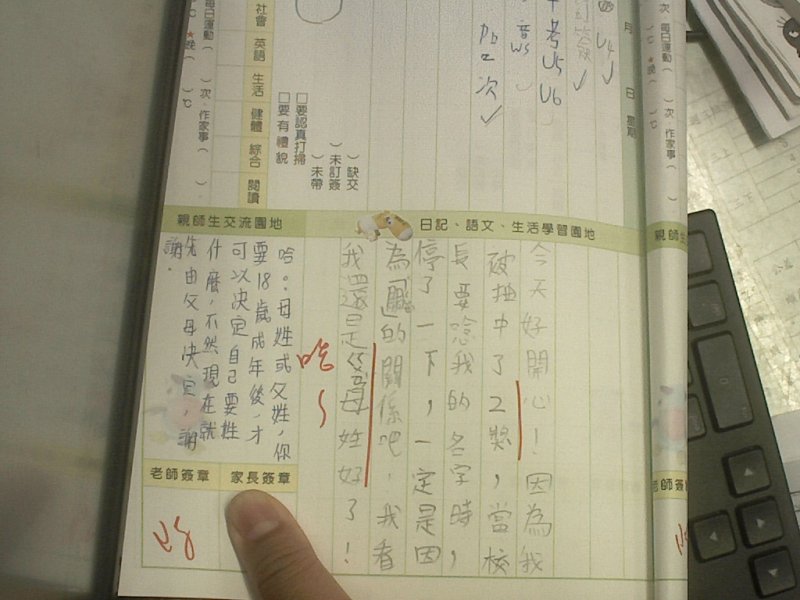 社會
英語
生活
健體
綜合
閱讀
每日運動（ ）次、作家事（ ）
★晚（ ）℃
□要認真打掃
□要有禮貌
（ ）缺交
（ ）未訂簽
（ ）未帶
考U5
U6
U4
次
月 日 星期
次 每日運動（ ）次、作家事（ ）
℃ ★晚（ ）℃
日記、語文、生活學習園地
今天好開心！因為我
被抽中了2獎，當校
長要唸我的名字時，
停了一下，一定是因
為「 」的關係吧，我看
我還是從母姓好了！
哈
親師生交流園地
哈。母姓或父姓，你
要18歲成年後，才
可以決定自己要姓
什麼，不然現在就
先由父母決定，謝
謝.
老師簽章
家長簽章
親師生
老師簽